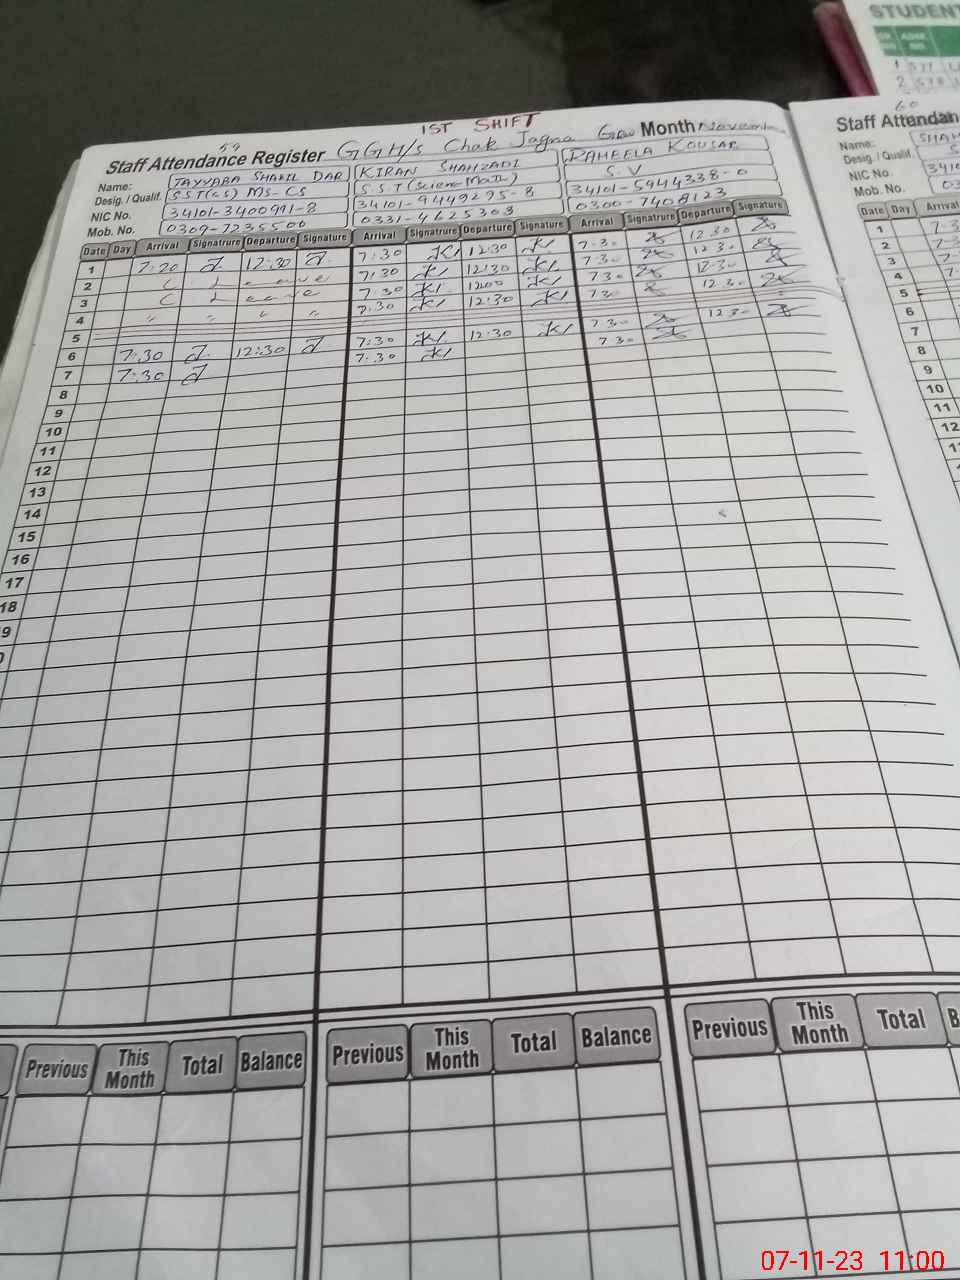 STUDENT
1ST SHIFT
59
Staff Attendance Register GGH/s Chak Jagna Month November
Name: TAYYABA SHAKIL DAR KIRAN SHAHZADI RAHEELA KOUSAR
Desig. / Qualif. SST(CS) MS-CS S.S.T (Science-Math) S.V
NIC No. 34101-3400991-8 34101-9449295-8 34101-5944338-0
Mob. No. 0309-7235500 0331-4625303 0300-7408123
Date Day Arrival Signatrure Departure Signature Arrival Signatrure Departure Signature Arrival Signatrure Departure Signature
1 7:20 12:30 7:30 12:30 7:30 12:30
2 Leave 7:30 12:30 7:30 12:30
3 Leave 7:30 12:00 7:30 12:30
4 " " " " 7:30 12:30 7:30 12:30
5
6 7:30 12:30 7:30 12:30 7:30 12:30
7 7:30 7:30 7:30
8
9
10
11
12
13
14
15
16
17
18
Previous This Month Total Balance Previous This Month Total Balance Previous This Month Total
60
Staff Attendan
Name:
Desig. / Qualif.
NIC No. 3410
Mob. No. 03
Date Day Arrival
1
2
3
4
5
6
7
8
9
10
11
12
07-11-23 11:00